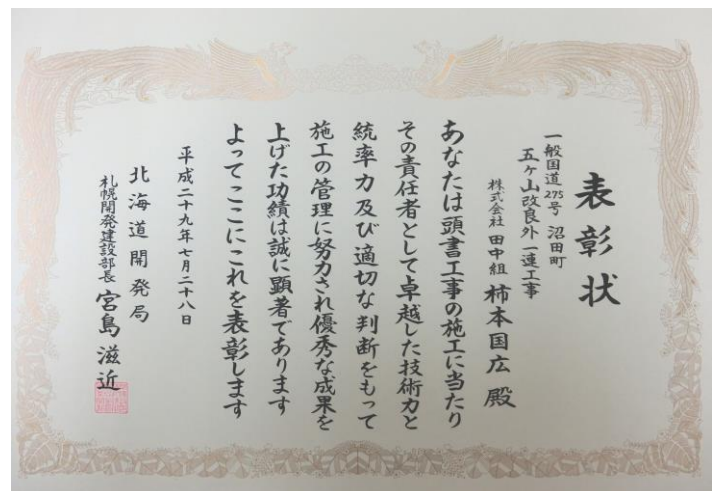 表彰状
一般国道275号 沼田町
五ヶ山改良外一連工事
株式会社 田中組 柿本国広 殿
あなたは頭書工事の施工に当たり
その責任者として卓越した技術力と
統率力及び適切な判断をもって
施工の管理に努力され優秀な成果を
上げた功績は誠に顕著であります
よってここにこれを表彰します
平成二十九年七月二十八日
北海道開発局
札幌開発建設部長 宮島滋近